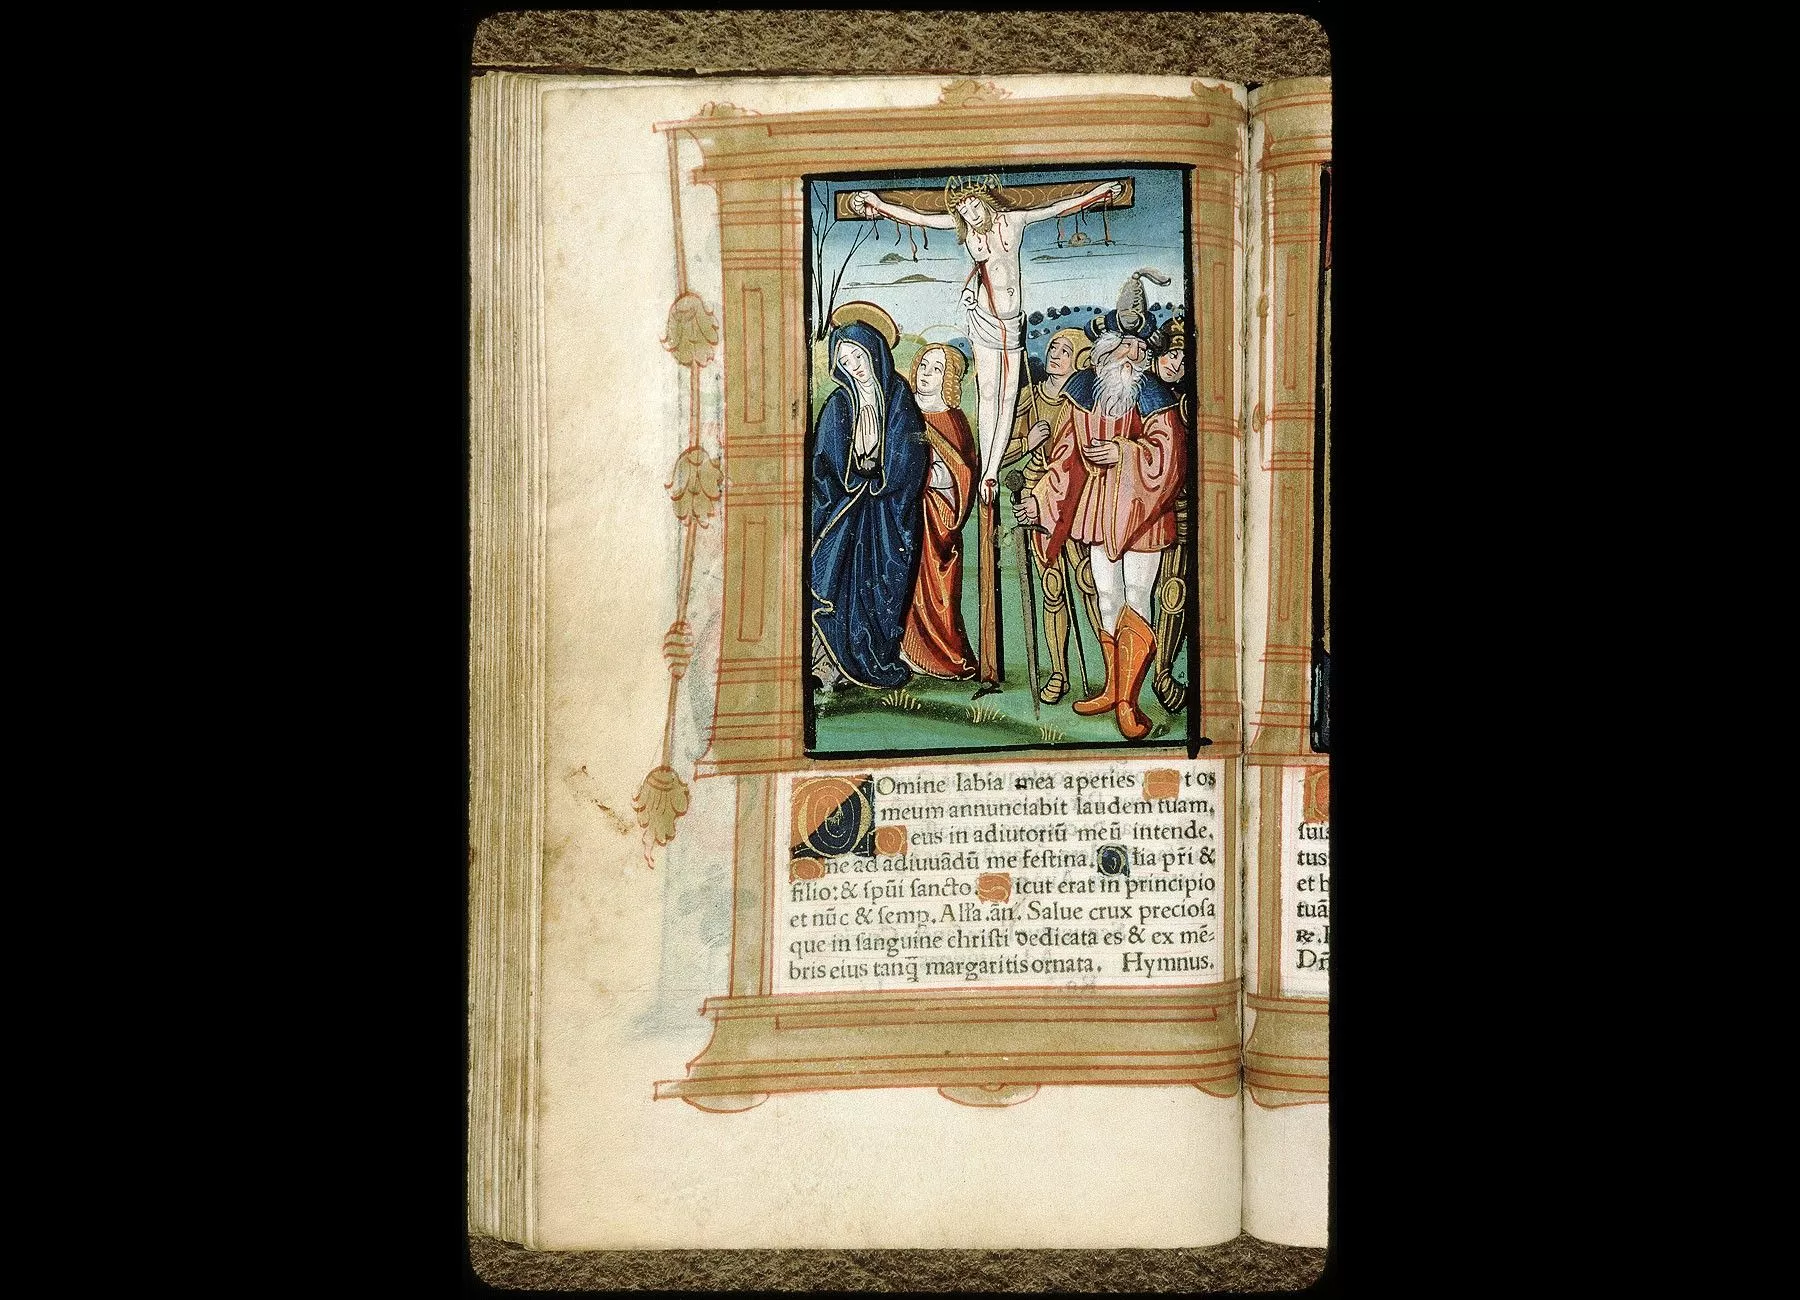 DOmine labia mea aperies Et os
meum annunciabit laudem tuam.
Deus in adiutoriū meū intende.
Dñe ad adiuuādū me feſtina. Glia pr̄i &
filio: & ſpūi ſancto. Sicut erat in principio
et nūc & ſemp. Alľa .añ. Salue crux precioſa
que in ſanguine chriſti dedicata es & ex mē-
bris eius tanq̄ margaritis ornata. Hymnus.
ſuis
tus
et h
tuā
℞.
Dñ